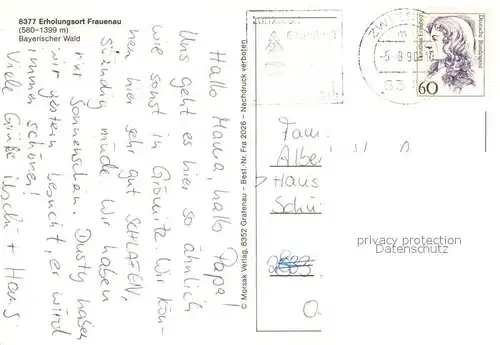 8377 Erholungsort Frauenau
(580–1399 m)
Bayerischer Wald
Hallo Mama, hallo Papa!
Uns geht es hier so ähnlich
wie sonst in Grömitz. Wir kön-
nen hier sehr gut SCHLAFEN,
ständig müde. Wir haben
nur Sonnenschein. Dusty haben
wir gestern besucht, er wird
immer schöner!
Viele Grüße + Hans
© Morsak Verlag, 8352 Grafenau – Best.-Nr. Fra 2026 – Nachdruck verboten
ZWI
-5.-8.90
Deutsche Bundespost
60
Fam.
Alber
Haus
Schü
privacy protection
Datenschutz